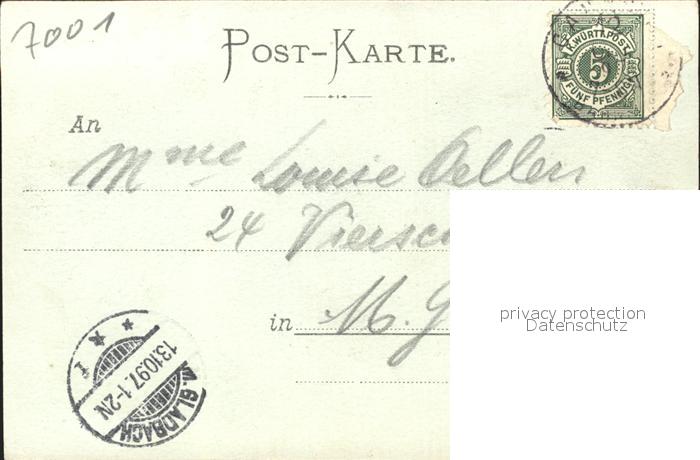 7001
POST-KARTE.
K. WÜRTT. POST
5
FÜNF PFENNIG
An
Mme Louise Oellers
24 Viersc
in M. G
privacy protection
Datenschutz
M. GLADBACH
13.10.97. 1-2N
* *